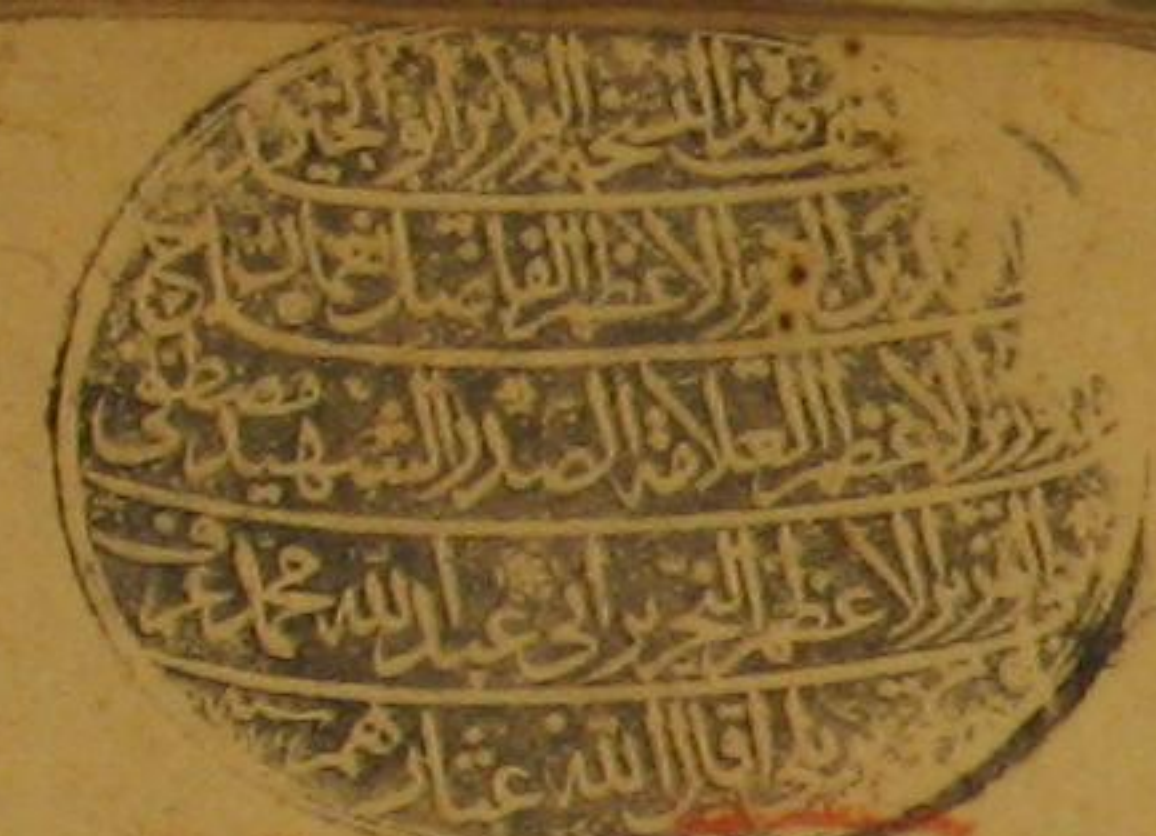 هذه النسخة الوزير ابو الخير
بن الوزير الاعظم الفاضل نعمان
الوزير الاعظم العلامة الصدر الشهيد مصطفى
بن الوزير الاعظم النحرير ابي عبد الله محمد عرف
اقال الله عثارهم